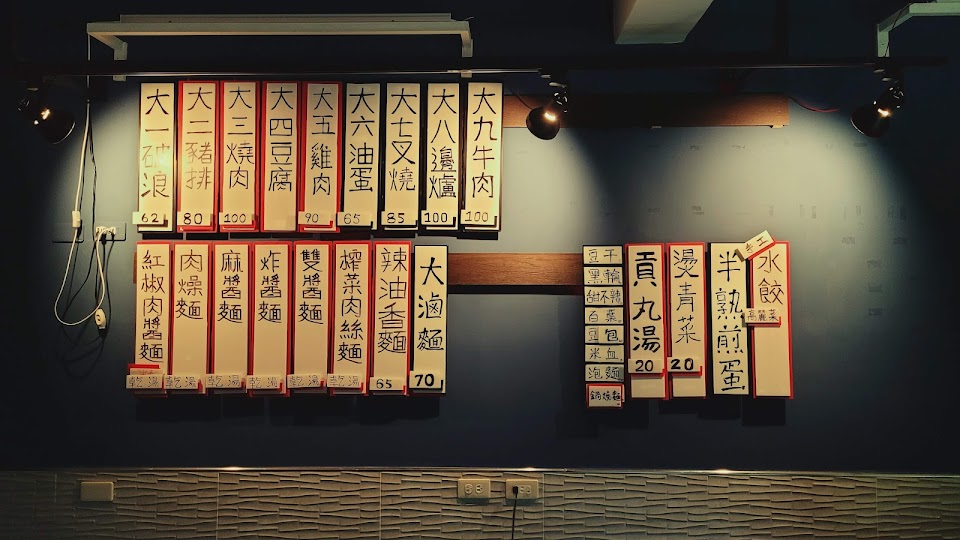 大一破浪
62
大二豬排
80
大三燒肉
100
大四豆腐
大五雞肉
90
大六油蛋
65
大七叉燒
85
大八邊爐
100
大九牛肉
100
紅椒肉醬麵
乾 湯
肉燥麵
乾 湯
麻醬麵
乾 湯
炸醬麵
乾 湯
雙醬麵
乾 湯
榨菜肉絲麵
乾 湯
辣油香麵
65
大滷麵
70
豆干
黑輪
甜不辣
百葉
豆包
米血
泡麵
鍋燒麵
貢丸湯
20
燙青菜
20
半熟煎蛋
手工
水餃
高麗菜